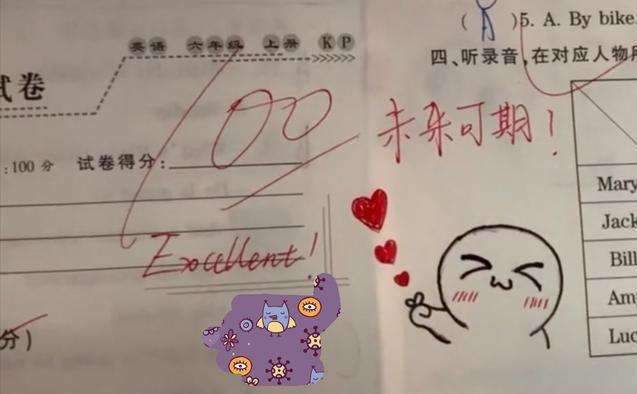 英语 六年级 上册 KP
试卷
:100 分 试卷得分:
100
Excellent!
分)
( )5. A. By bike
四、听录音,在对应人物
未来可期!
Mary
Jack
Bill
Amy
Lucy